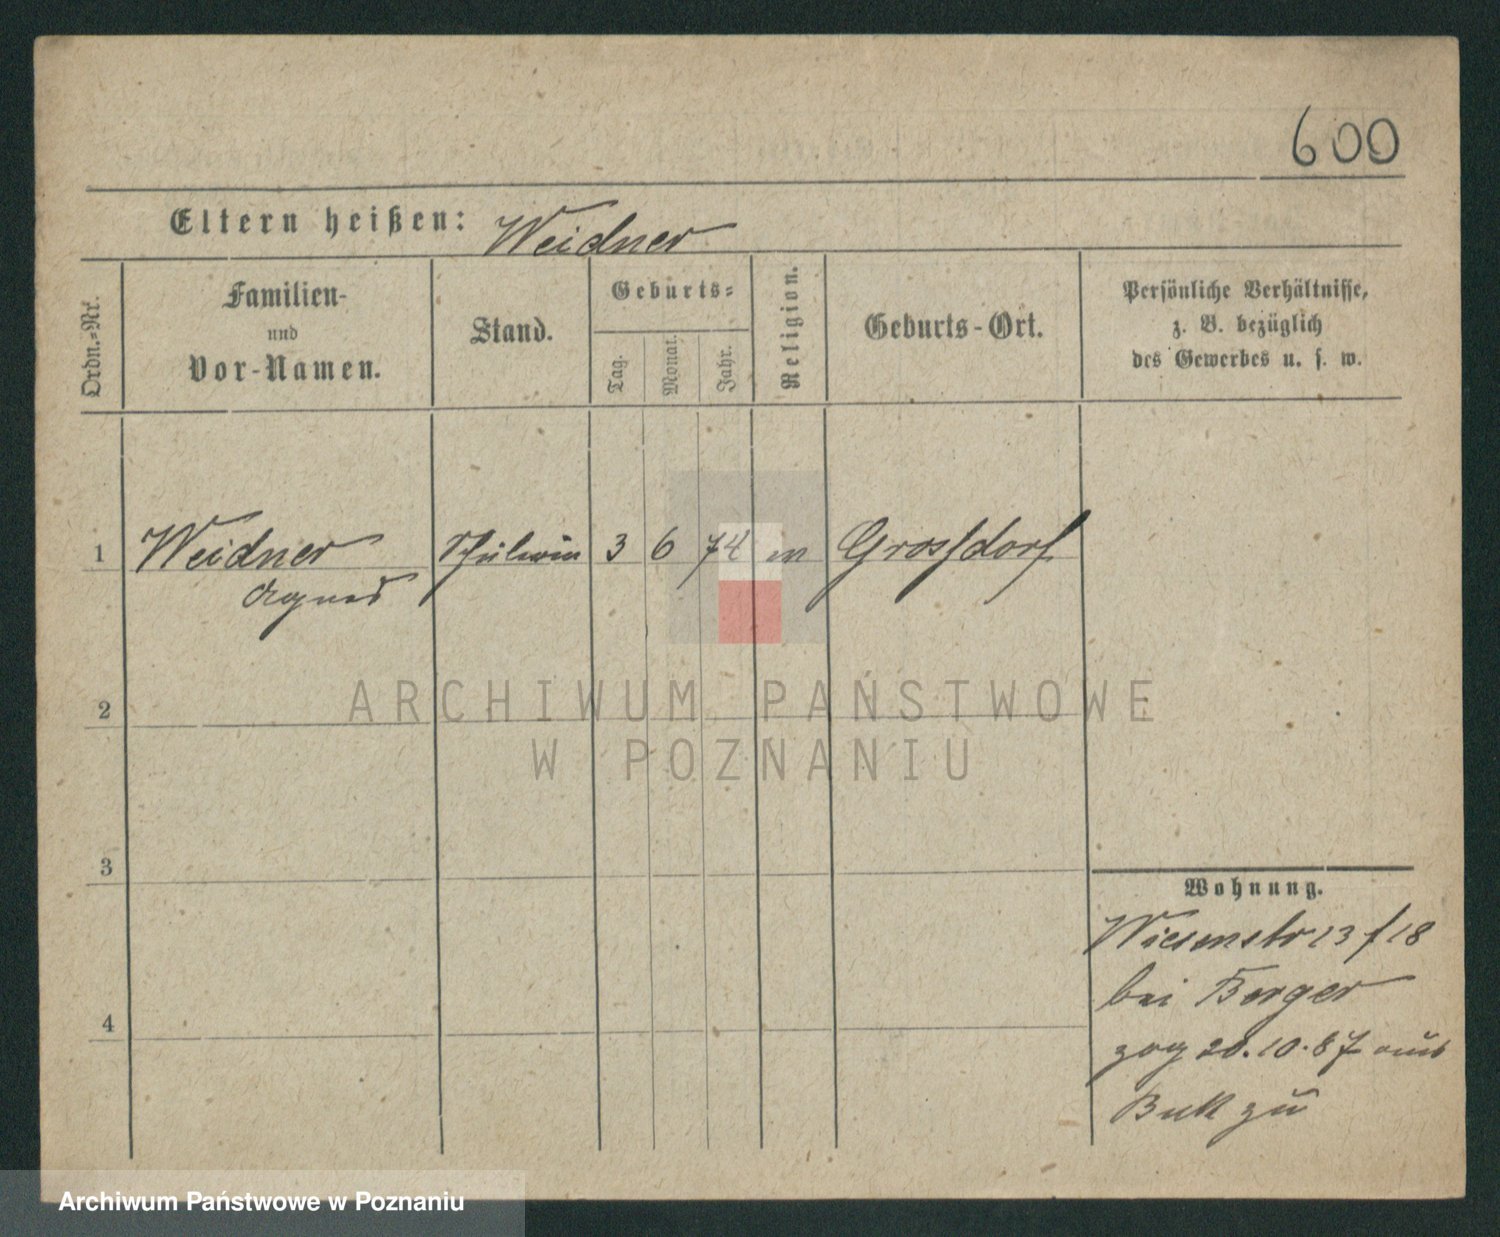 600
Eltern heißen: Weidner
Ordn.-Nr.
Familien-
und
Vor-Namen.
Stand.
Geburts-
Tag.
Monat.
Jahr.
Religion.
Geburts-Ort.
Persönliche Verhältnisse,
z. B. bezüglich
des Gewerbes u. s. w.
1 Weidner 3 6 74 Grossdorf
Agnes
ARCHIWUM PAŃSTWOWE
W POZNANIU
2
3
4
Wohnung.
Wiesenstr 13 f 18
bei Berger
zog 20.10.87 aus
Buk zu
Archiwum Państwowe w Poznaniu